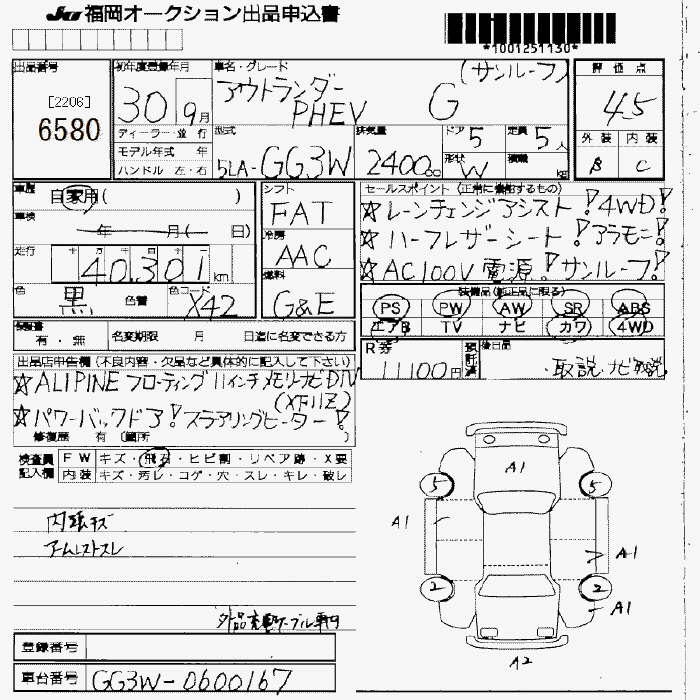 JU 福岡オークション出品申込書
*1001251130*
出品番号 初年度登録年月 車名・グレード 評価点
[2206]
6580
30 9月
アウトランダー PHEV G (サンルーフ)
4.5
ディーラー・並行
モデル年式 年
ハンドル 左・右
型式 5LA-GG3W
排気量 2400cc
ドア 5 形状 W
定員 5人 積載 kg
外装 内装
B C
車歴 自家用( )
車検 年 月( 日)
走行 40,301 km
色 黒 色替 色コード X42
シフト FAT
冷房 AAC
燃料 G&E
セールスポイント(正常に機能するもの)
☆レーンチェンジアシスト!4WD!
☆ハーフレザーシート!アラモニ!
☆AC100V電源!サンルーフ!
装備品(純正品に限る)
PS PW AW SR ABS
エアB TV ナビ カワ 4WD
保証書 有・無 名変期限 月 日迄に名変できる方
R券 11100円 預託済 後日品 取説.ナビ取説
出品店申告欄(不良内容・欠品など具体的に記入して下さい)
☆ALIPINE フローティング11インチメモリーナビDTV
(XF11Z)
☆パワーバックドア!ステアリングヒーター!
修復歴 有 〔箇所 〕
検査員記入欄
FW キズ・飛石・ヒビ割・リペア跡・X要
内装 キズ・汚レ・コゲ・穴・スレ・キレ・破レ
内張キズ
アームレストスレ
外品充電ケーブル車内
A1
5 5
A1
A1
2 2
A1
A2
登録番号
車台番号 GG3W-0600167